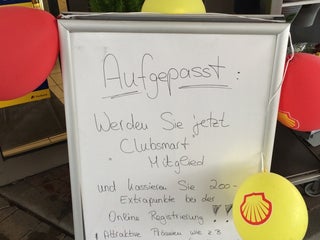 Aufgepasst:
Werden Sie jetzt
Clubsmart
Mitglied
und kassieren Sie 200-
Extrapunkte bei der
Online Registrierung!!
! Attraktive Prämien wie z.B.